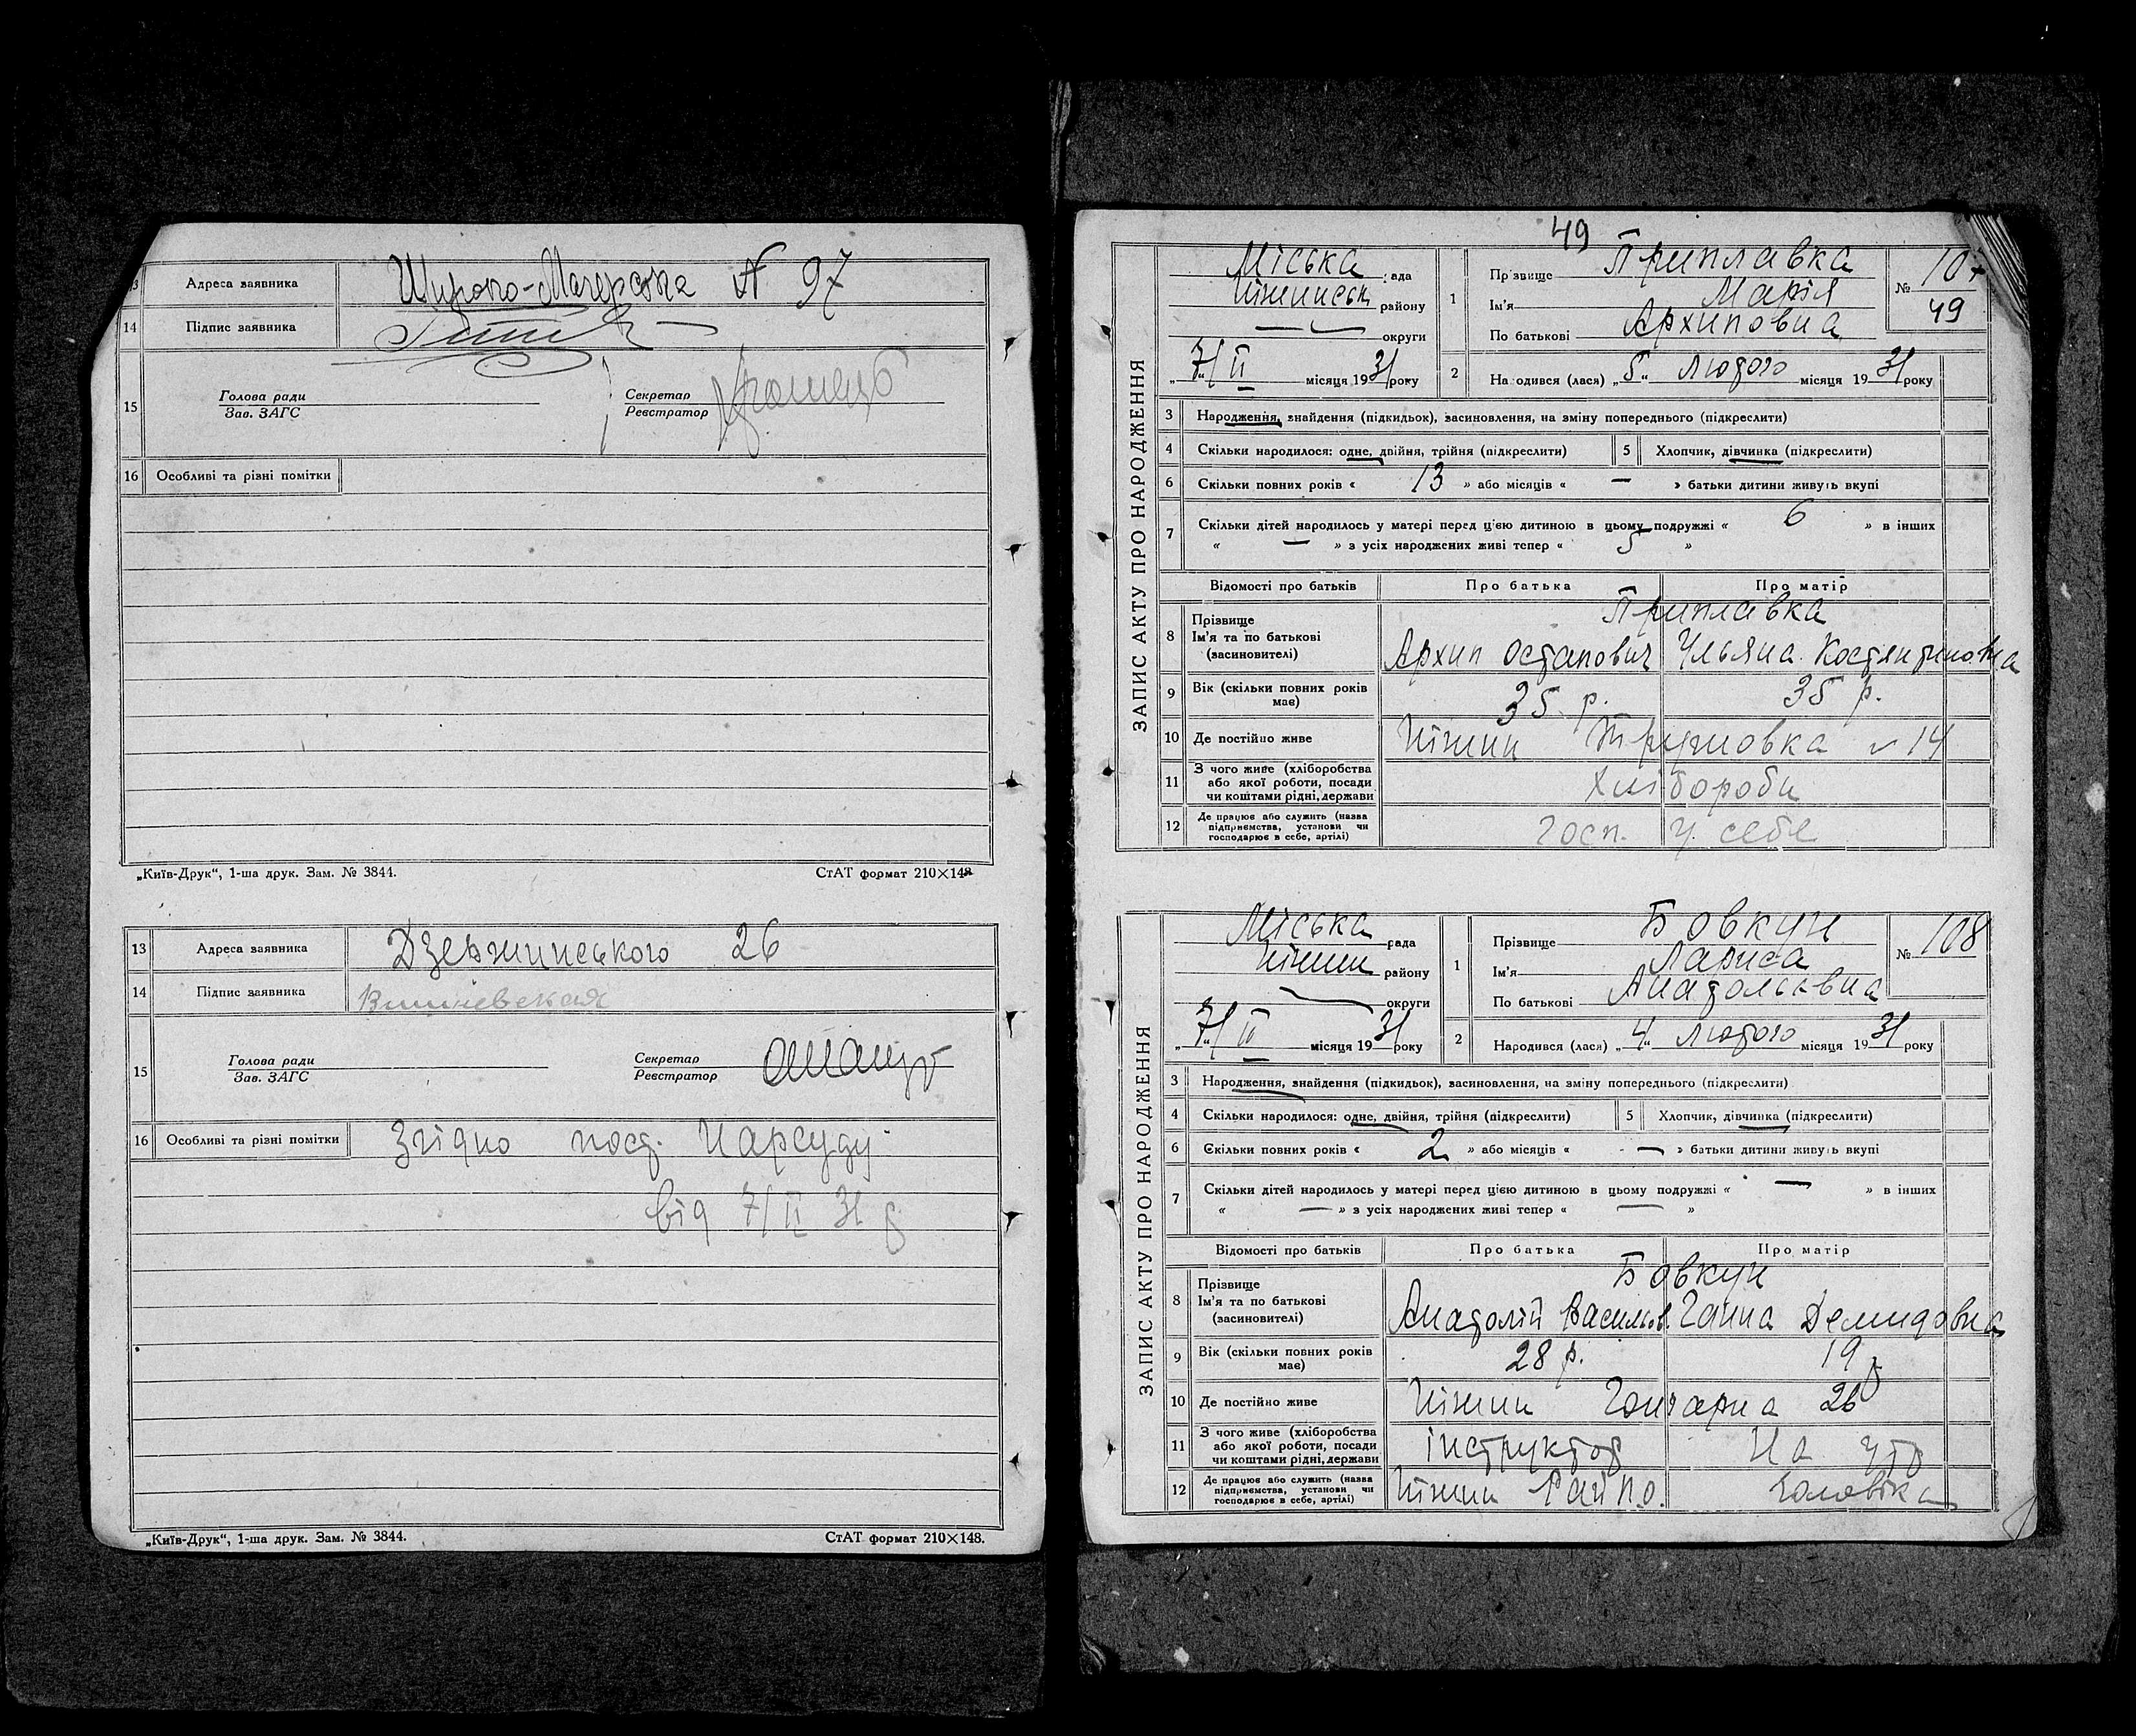 13 Адреса заявника Широко-Магерська N 97
14 Підпис заявника
15 Голова ради Зав. ЗАГС Секретар Реєстратор
16 Особливі та різні помітки
„Київ-Друк“, 1-ша друк. Зам. № 3844. СтАТ формат 210×148
13 Адреса заявника Дзержинського 26
14 Підпис заявника Вишневская
15 Голова ради Зав. ЗАГС Секретар Реєстратор
16 Особливі та різні помітки Згідно пост. Нарсуду
від 7/II 31 р
„Київ-Друк“, 1-ша друк. Зам. № 3844. СтАТ формат 210×148.
49
ЗАПИС АКТУ ПРО НАРОДЖЕННЯ
Міська рада
Ніжинськ району
— округи
„7/“ II місяця 1931 року
1 Прізвище Приплавка
Ім'я Марія
По батькові Архиповна
№ 107
49
2 Народився (лася) „5“ лютого місяця 1931 року
3 Народження, знайдення (підкидьок), засиновлення, на зміну попереднього (підкреслити)
4 Скільки народилося: одне, двійня, трійня (підкреслити) 5 Хлопчик, дівчинка (підкреслити)
6 Скільки повних років « 13 » або місяців « — » батьки дитини живуть вкупі
7 Скільки дітей народилось у матері перед цією дитиною в цьому подружжі « 6 » в інших
« — » з усіх народжених живі тепер « 5 »
Відомості про батьків Про батька Про матір
8 Прізвище Ім'я та по батькові (засиновителі) Приплавка
Архип Остапович Ульяна Костянтиновна
9 Вік (скільки повних років має) 35 р. 35 р.
10 Де постійно живе Ніжин 14
11 З чого живе (хліборобства або якої роботи, посади чи коштами рідні, держави Хлібороби
12 Де працює або служить (назва підприємства, установи чи господарює в себе, артілі) Госп. у себе
ЗАПИС АКТУ ПРО НАРОДЖЕННЯ
Міська рада
Ніжин району
— округи
„7/“ II місяця 1931 року
1 Прізвище Бовкун
Ім'я Лариса
По батькові Анатольєвна
№ 108
2 Народився (лася) „4“ лютого місяця 1931 року
3 Народження, знайдення (підкидьок), засиновлення, на зміну попереднього (підкреслити)
4 Скільки народилося: одне, двійня, трійня (підкреслити) 5 Хлопчик, дівчинка (підкреслити)
6 Скільки повних років « 2 » або місяців « — » батьки дитини живуть вкупі
7 Скільки дітей народилось у матері перед цією дитиною в цьому подружжі « — » в інших
« — » з усіх народжених живі тепер « — »
Відомості про батьків Про батька Про матір
8 Прізвище Ім'я та по батькові (засиновителі) Бовкун
Анатолій Васильов. Ганна Демидовна
9 Вік (скільки повних років має) 28 р. 19 р
10 Де постійно живе Ніжин Гончарна 26
11 З чого живе (хліборобства або якої роботи, посади чи коштами рідні, держави інструктор На утр
12 Де працює або служить (назва підприємства, установи чи господарює в себе, артілі) Ніжин Рай п.о. Чоловіка